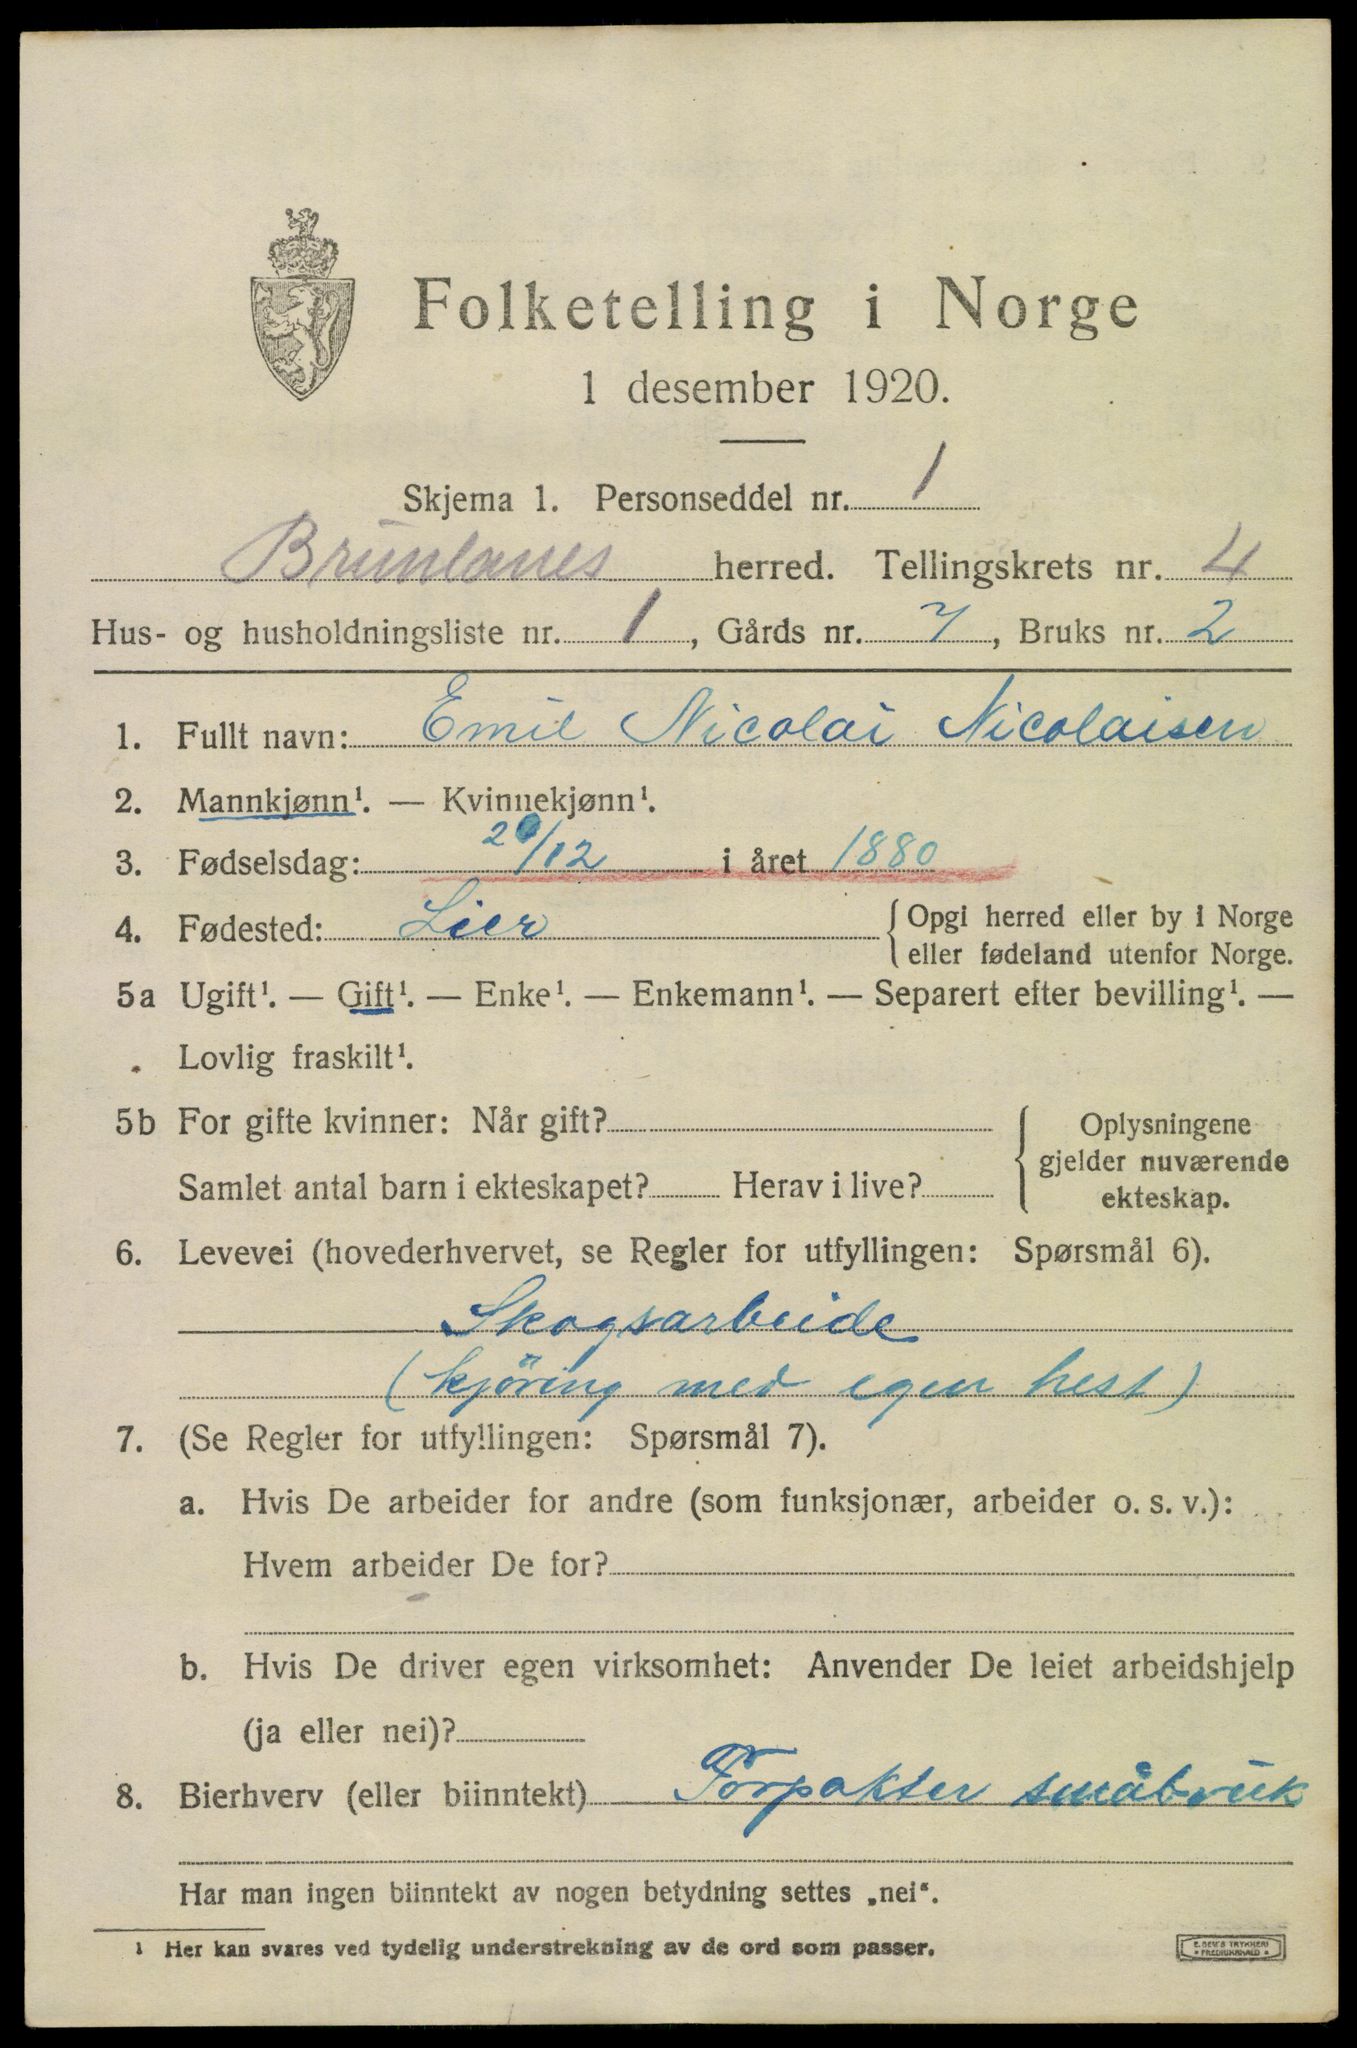 Folketelling i Norge
1 desember 1920.
Skjema 1. Personseddel nr. 1
Brunlanes herred. Tellingskrets nr. 4
Hus- og husholdningsliste nr. 1, Gårds nr. 7, Bruks nr. 2
1. Fullt navn: Emil Nicolai Nicolaisen
2. Mannkjønn¹. — Kvinnekjønn¹.
3. Fødselsdag: 20/12 i året 1880
4. Fødested: Lier { Opgi herred eller by i Norge
eller fødeland utenfor Norge.
5a Ugift¹. — Gift¹. — Enke¹. — Enkemann¹. — Separert efter bevilling¹. —
Lovlig fraskilt¹.
5b For gifte kvinner: Når gift? { Oplysningene
gjelder nuværende
Samlet antal barn i ekteskapet? Herav i live? ekteskap.
6. Levevei (hovederhvervet, se Regler for utfyllingen: Spørsmål 6).
Skogsarbeide
(kjöring med egen hest)
7. (Se Regler for utfyllingen: Spørsmål 7).
a. Hvis De arbeider for andre (som funksjonær, arbeider o. s. v.):
Hvem arbeider De for?
b. Hvis De driver egen virksomhet: Anvender De leiet arbeidshjelp
(ja eller nei)?
8. Bierhverv (eller biinntekt) Forpakter småbruk
Har man ingen biinntekt av nogen betydning settes „nei“.
¹ Her kan svares ved tydelig understrekning av de ord som passer.
E. SEM'S TRYKKERI
FREDRIKSHALD